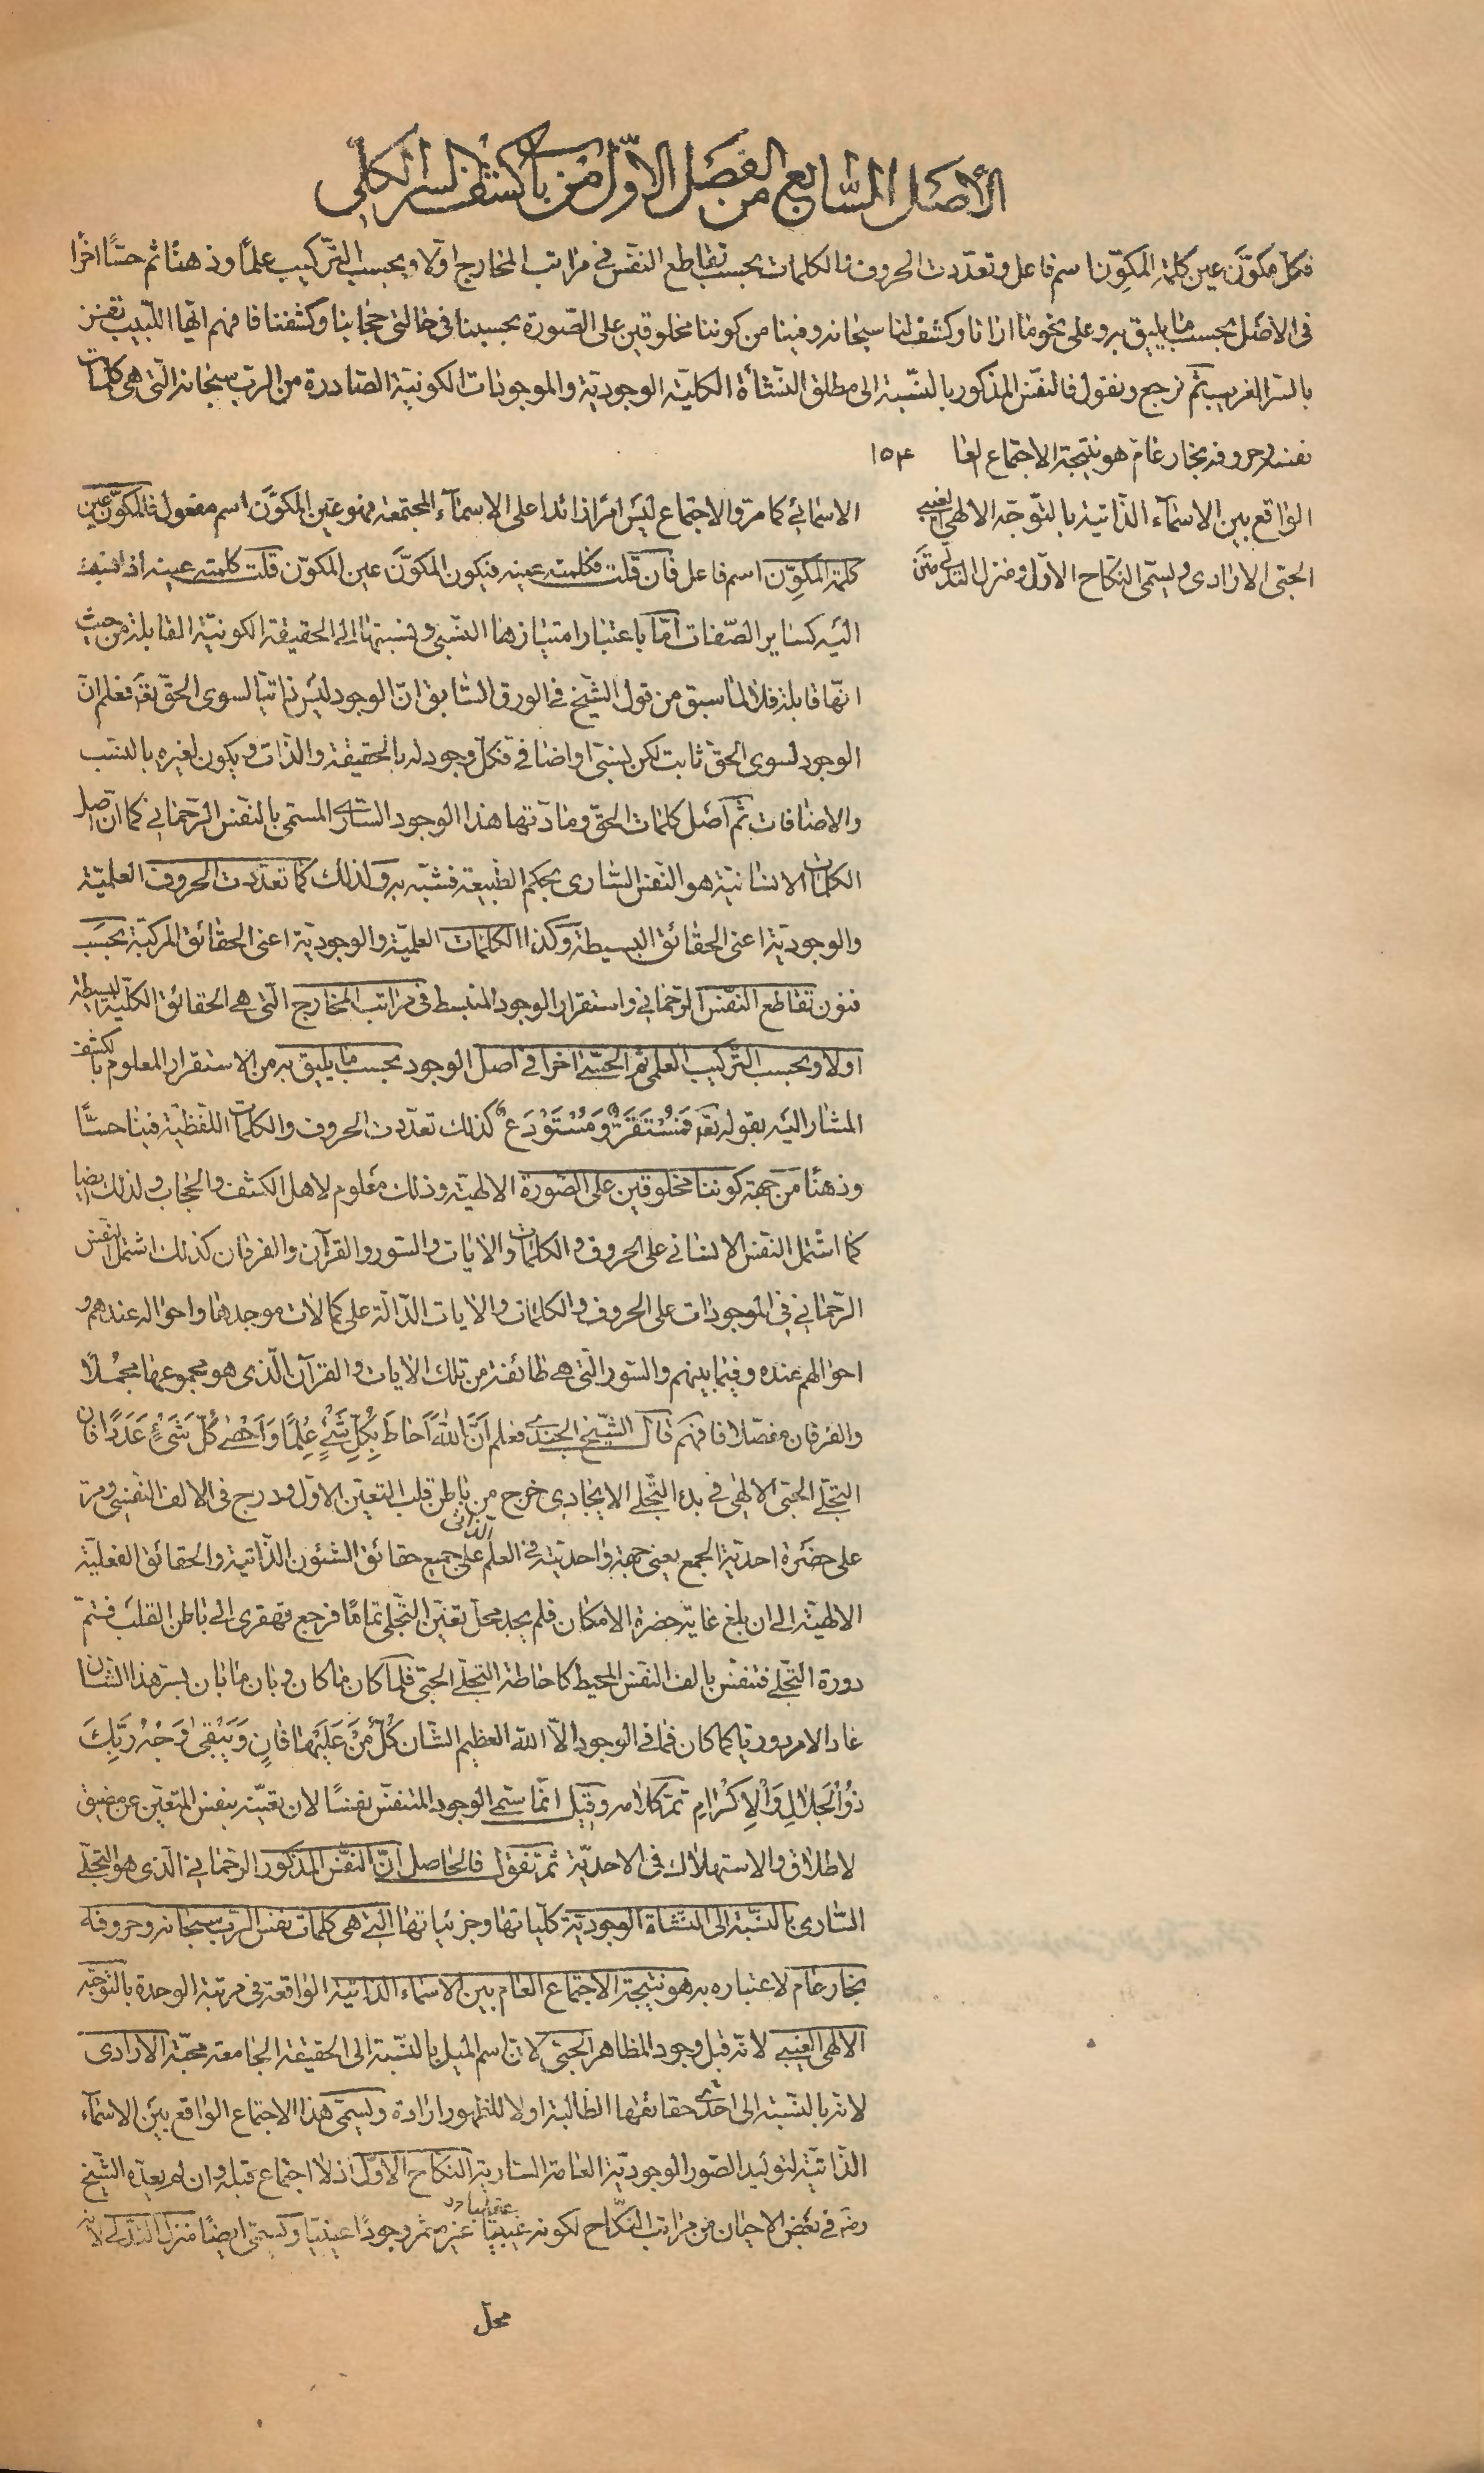 الأصل السابع من الفصل الاوّل من باب كشف السر الكلي
فكلّ مكوَّن عين كلمة المكوِّن اسم فاعل وتعدّدت الحروف والكلمات بحسب تقاطع النفس في مراتب المخارج اوّلا وبحسب التّركيب علمًا وذهنًا ثم حسّا اخرًا
في الاصل بحسب ما يليق به وعلى نحو ما ارانا وكشف لنا سبحانه وفينا من كوننا مخلوقين على الصّورة بحسبنا في حالتي حجابنا وكشفنا فافهم ايّها اللّبيب تفز
بالسّر الغريب ثم نرجع ونقول فالنفس المذكور بالنّسبة الى مطلق النّشأة الكليّة الوجوديّة والموجودات الكونيّة الصّادرة من الربّ سبحانه الّتي هي كلمات
نفسه وحروفه بخار عام هو نتيجة الاجتماع العا ١٥٣
الواقع بين الاسمآء الذّاتية بالتّوجّه الالهي الغيبي
الحبّي الارادي ويسمّى النكاح الاوّل ومنزل التدلّي متن
الاسمائي كما مرّ والاجتماع ليس امرًا زائدا على الاسمآء المجتمعة فهو عين المكوَّن اسم مفعول فالمكوَّن عين
كلمة المكوِّن اسم فاعل فان قلت فكلمته عينه فيكون المكوَّن عين المكوّن قلت كلمته عينه اذا نسبت
اليه كساير الصّفات امّا باعتبار امتيازها النّسبي ونسبتها الى الحقيقة الكونيّة القابلة من حيث
انّها قابلة فلا لما سبق من قول الشّيخ في الورق السّابق انّ الوجود ليس ذاتيّا لسوى الحقّ تعه فعلم ان
الوجود لسوى الحقّ ثابت لكن نسبيّ واضافي فكلّ وجود له بالحقيقة والذّات ويكون لغيره بالنسب
والاضافات ثم اصل كلمات الحقّ ومادّتها هذا الوجود السّاري المسمّى بالنّفس الرّحماني كما انّ اصل
الكلمات الانسانيّة هو النّفس السّاري بحكم الطّبيعة فشبّه به ولذلك كما تعدّدت الحروف العلميّة
والوجوديّة اعني الحقائق البسيطة وكذا الكلمات العلميّة والوجوديّة اعني الحقائق المركّبة بحسب
فنون تقاطع النّفس الرّحماني واستقرار الوجود المنبسط في مراتب المخارج الّتي هي الحقائق الكليّة البسيطة
اولا وبحسب التّركيب العلمي ثم الحسّي اخرا في اصل الوجود بحسب ما يليق به من الاستقرار المعلوم بالكشف
المشار اليه بقوله تعه فَمُسْتَقَرٌّ وَمُسْتَوْدَعٌ كذلك تعدّدت الحروف والكلمات اللّفظيّة فينا حسّا
وذهنًا من جهة كوننا مخلوقين على الصّورة الالهيّة وذلك معلوم لاهل الكشف والحجاب ولذلك ايضا
كما اشتمل النّفس الانساني على الحروف والكلمات والايات والسّور والقرآن والفرقان كذلك اشتمل النفس
الرّحماني في الموجودات على الحروف والكلمات والايات الدّالّة على كمالات موجدها واحواله عندهم و
احوالهم عنده وفيما بينهم والسّور الّتي هي طائفة من تلك الايات والقرآن الّذي هو مجموعها مجملا
والفرقان مفصّلا فافهم قال الشّيخ الجندي فعلم اَنَّ اللهَ اَحَاطَ بِكُلِّ شَيْءٍ عِلْمًا وَاَحْصٰى كُلَّ شَيْءٍ عَدَدًا فان
التجلّي الحبّي الالهي في بدء التّجلّي الايجادي خرج من باطن قلب التعيّن الاوّل ودرج في الالف النّفسي ومر
على حضرة احديّة الجمع يعني جهة واحديّته في العلم الذاتي على جميع حقائق الشّئون الذّاتيّة والحقائق الفعليّة
الالهيّة الى ان بلغ غاية حضرة الامكان فلم يجد محلّ تعيّن التّجلّي تمامًا فرجع قهقرى الى باطن القلب فتمّ
دورة التّجلّي فتنفّس بالف النّفس المحيط كاحاطة التجلّي الحبّي فلمّا كان ما كان وبان ما بان بسرّ هذا الشّان
عاد الامر دوريّا كما كان فما في الوجود الّا الله العظيم الشّان كُلُّ مَنْ عَلَيْهَا فَانٍ وَيَبْقٰى وَجْهُ رَبِّكَ
ذُوالْجَلَالِ وَالْاِكْرَامِ تمّ كلامه وقيل انّما سمّي الوجود المتنفّس نفسًا لان تعيّنه بنفس المتعيّن عن مضيق
لاطلاق والاستهلاك في الاحديّة ثم تقول فالحاصل انّ النّفس المذكور الرّحماني الّذي هو التجلّي
السّاري بالنّسبة الى النّشاة الوجوديّة كلّياتها وجزئيّاتها الّتي هي كلمات نفس الربّ سبحانه وحروفه
بخار عام لاعتباره به هو نتيجة الاجتماع العام بين الاسماء الذاتيّة الواقعة في مرتبة الوحدة بالتّوجّه
الالهي الغيبي لانّه قبل وجود المظاهر الحبّي لانّ اسم الميل بالنّسبة الى الحقيقة الجامعة محبّة الارادي
لانّه بالنّسبة الى احدى حقائقها الطّالبة اولا للظهور ارادة ويسمّى هذا الاجتماع الواقع بين الاسمآء
الذّاتيّة لتوليد الصّور الوجوديّة العامّة السّارية النّكاح الاوّل اذ لا اجتماع قبله وان لم يعدّه الشّيخ
رضه في بعض الاحيان من مراتب النّكاح لكونه غيبيّا غير مثمر وجودًا عينيّا ويسمّى ايضًا منزل التدلّي لانّه
محلّ